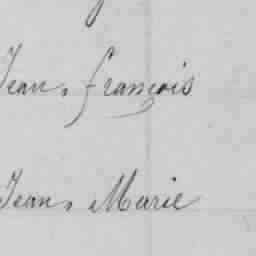 Jean, françois
Jean, Marie